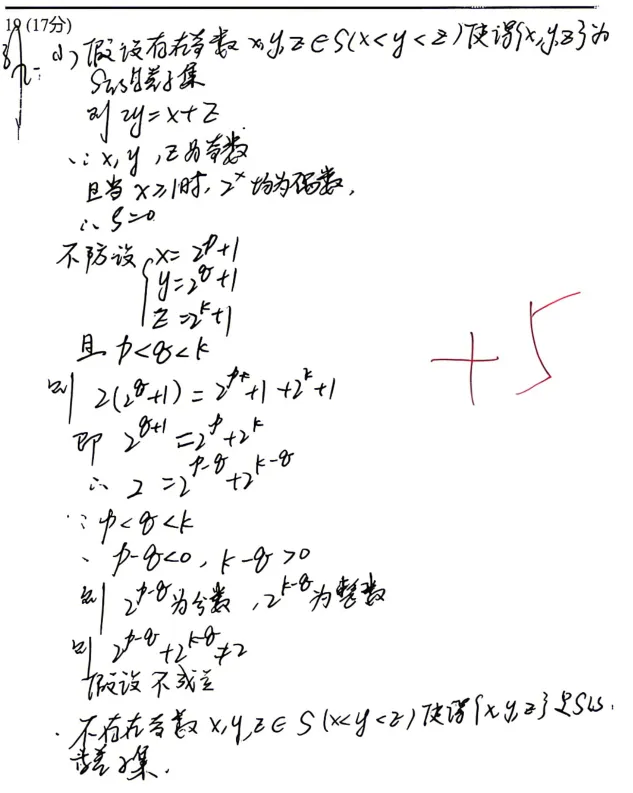 19 (17分)
(1) 假设存在奇数 x,y,z∈S(x<y<z)使得{x,y,z}为
S的等差子集
则 2y=x+z
∵ x,y,z为奇数
且当 x≥1时, 2^x 均为偶数,
∴ S=0
不防设 { x=2^p+1
y=2^q+1
z=2^k+1
且 p<q<k
则 2(2^q+1)=2^p+1+2^k+1
即 2^{q+1}=2^p+2^k
∴ 2=2^{p-q}+2^{k-q}
∵ p<q<k
∴ p-q<0, k-q>0
则 2^{p-q}为分数, 2^{k-q}为整数
则 2^{p-q}+2^{k-q}≠2
假设不成立
∴ 不存在奇数 x,y,z∈S(x<y<z)使得{x,y,z}是S的
等差子集.
+5